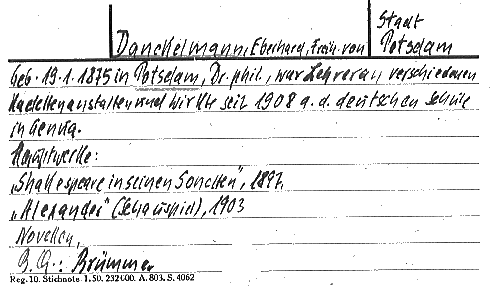 Stadt
Danckelmann, Eberhard, Frh. von Potsdam
geb. 19.1.1875 in Potsdam, Dr. phil., war Lehrer an verschiedenen
Kadettenanstalten und wirkte seit 1908 a. d. deutschen Schule
in Genua.
Hauptwerke:
„Shakespeare in seinen Sonetten", 1897.
„Alexander" (Schauspiel), 1903
Novellen,
B. Q.: Brümmer
Reg. 10. Stichnote. 1. 50. 232000. A. 803. S. 4062